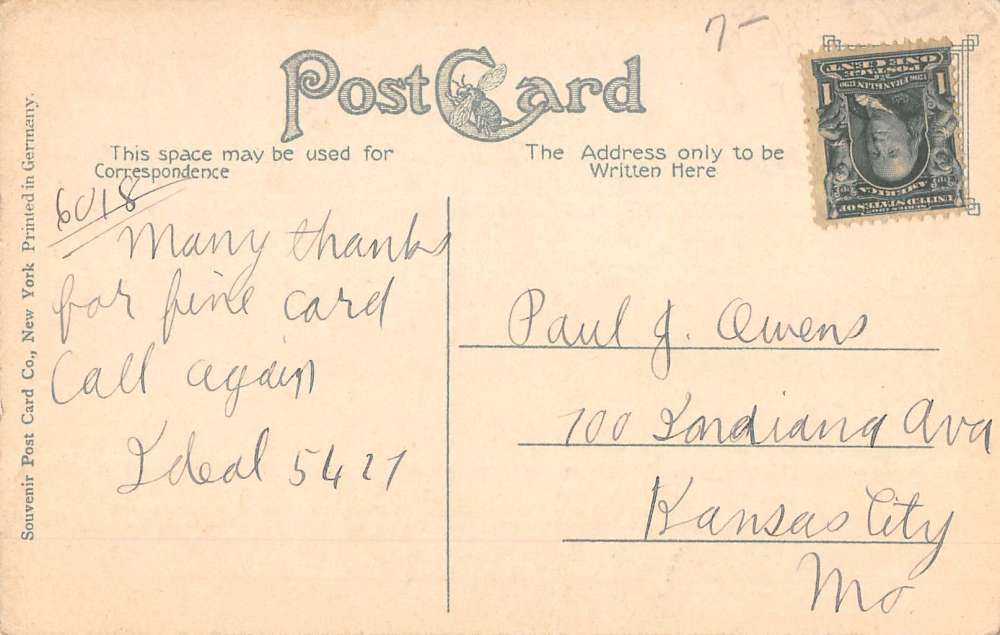 7-
Post Card
This space may be used for
Correspondence
The Address only to be
Written Here
6018
Many thanks
for fine card
Call again
Ideal 5427
Paul J. Owens
700 Indiana Ava
Kansas City
Mo
Souvenir Post Card Co., New York Printed in Germany.
UNITED STATES OF
AMERICA
1706 FRANKLIN 1790
POSTAGE
1 ONE CENT 1